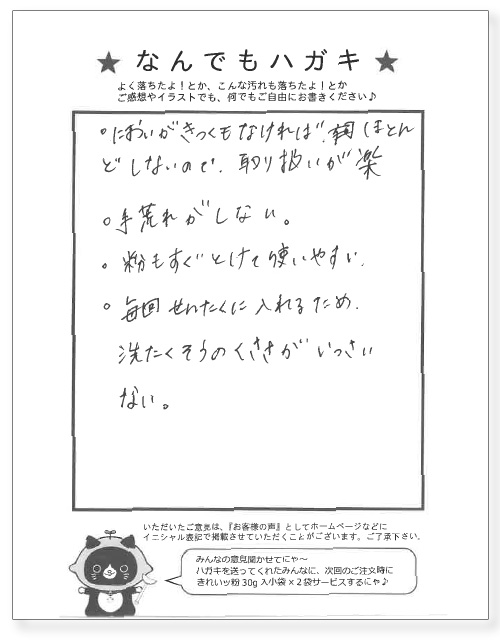 ★ なんでもハガキ ★
よく落ちたよ！とか、こんな汚れも落ちたよ！とか
ご感想やイラストでも、何でもご自由にお書きください♪
。においがきつくもなければ、ほとん
どしないので、取り扱いが楽
。手荒れがしない。
。粉もすぐとけて使いやすい。
。毎回せんたくに入れるため、
洗たくそうのくささがいっさい
ない。
いただいたご意見は、『お客様の声』としてホームページなどに
イニシャル表記で掲載させていただくことがございます。ご了承下さい。
みんなの意見聞かせてにゃ〜
ハガキを送ってくれたみんなに、次回のご注文時に
きれいッ粉 30g 入小袋 × 2 袋サービスするにゃ♪